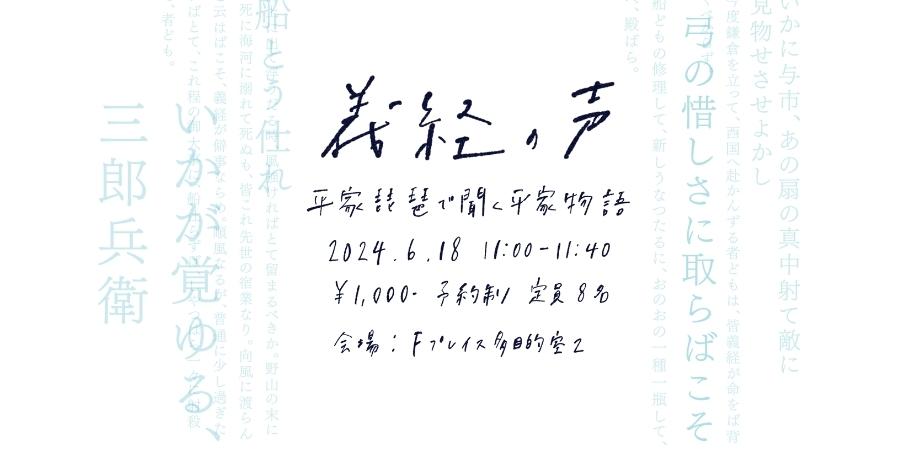 義経の声
平家琵琶で聞く平家物語
2024.6.18 11:00-11:40
¥1,000- 予約制 定員8名
会場:Fプレイス多目的室2
いかに与市、あの扇の真中射て敵に
見物せさせよかし
今度鎌倉を立って、西国へ赴かんずる者どもは、皆義経が命をば背
弓の惜しさに取らばこそ
船どもの修理して、新しうなつたるに、おのおの一種一瓶して、
、殿ばら。
船とう仕れ
ばとて留まるべきか。野山の末に
死に海河に溺れて死ぬも、皆これ先世の宿業なり。向風に渡らん
と云はばこそ、義経が僻事ならめ。順風なるが、普通に少し過ぎた
ればとて、これ程の御大事に
いかが覚ゆる、
者ども。
三郎兵衛